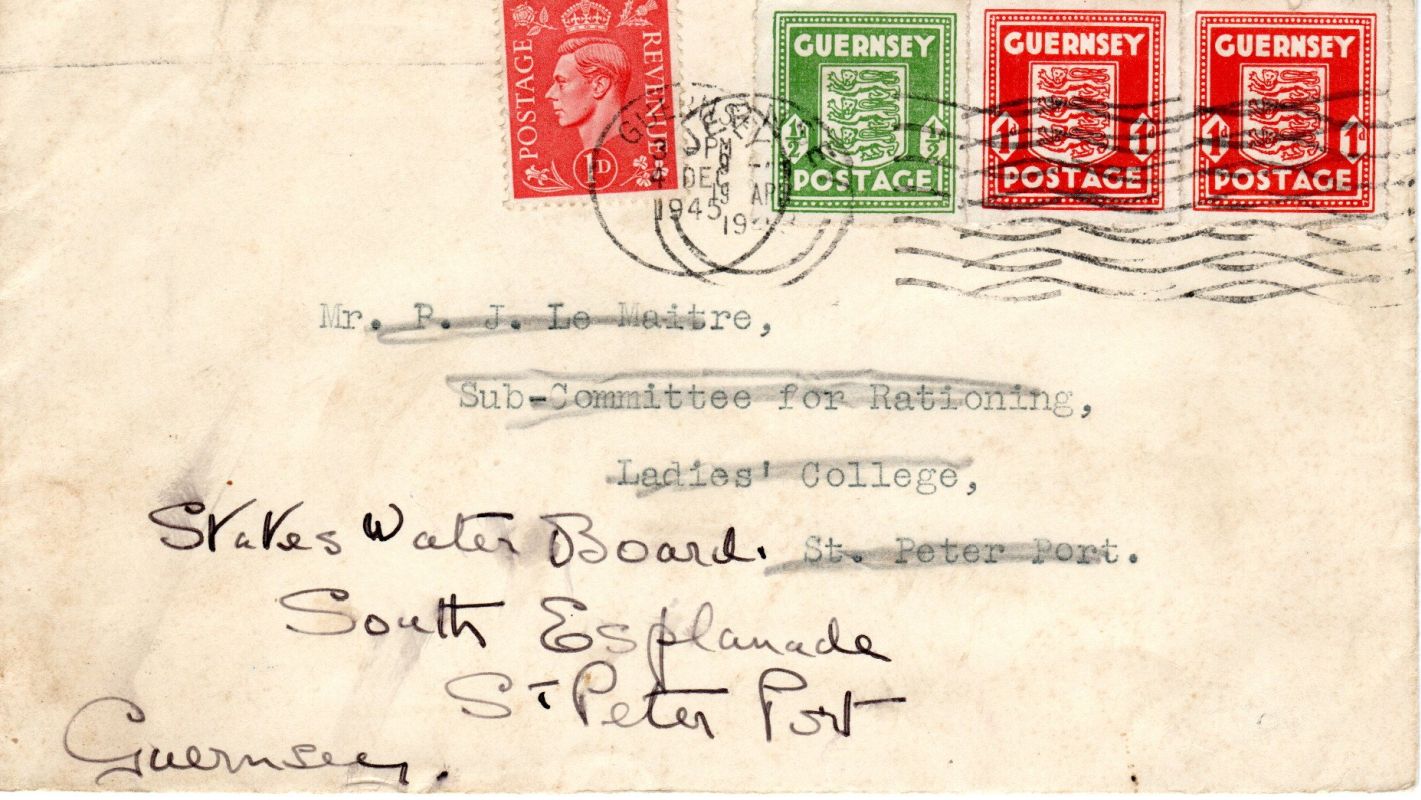 POSTAGE REVENUE
1D
GUERNSEY
1/2d 1/2d
POSTAGE
GUERNSEY
1d 1d
POSTAGE
GUERNSEY
1d 1d
POSTAGE
PM
4 DEC
1945
AP
19
Mr. P. J. Le Maitre,
Sub-Committee for Rationing,
Ladies' College,
St. Peter Port.
States Water Board.
South Esplanade
St Peter Port
Guernsey.